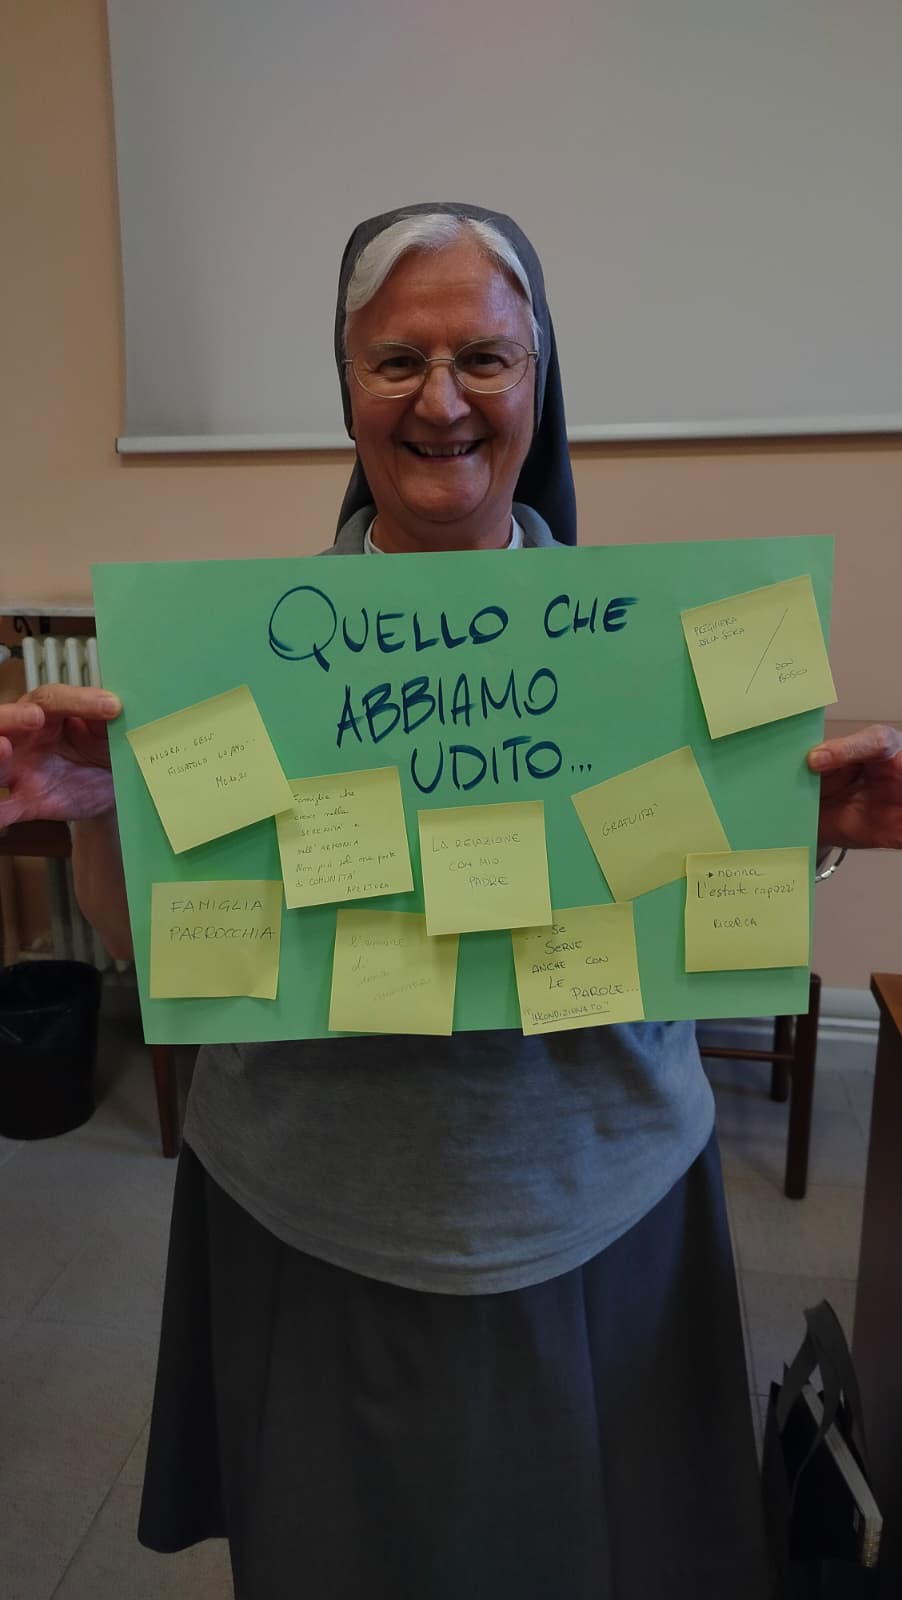 QUELLO CHE
ABBIAMO
UDITO...
PREGHIERA
DELLA SERA
DON
BOSCO
"ALLORA, GESÙ
FISSATOLO LO AMÒ"..
Mc 10,21
Famiglia che
cresce nella
SERENITÀ e
nell'ARMONIA
Non più sola ma parte
di COMUNITÀ
APERTURA
LA RELAZIONE
CON MIO
PADRE
GRATUITÀ
nonna
L'estate ragazzi
RICERCA
FAMIGLIA
PARROCCHIA
di
... Se
SERVE
ANCHE CON
LE
PAROLE...
"INCONDIZIONATO"